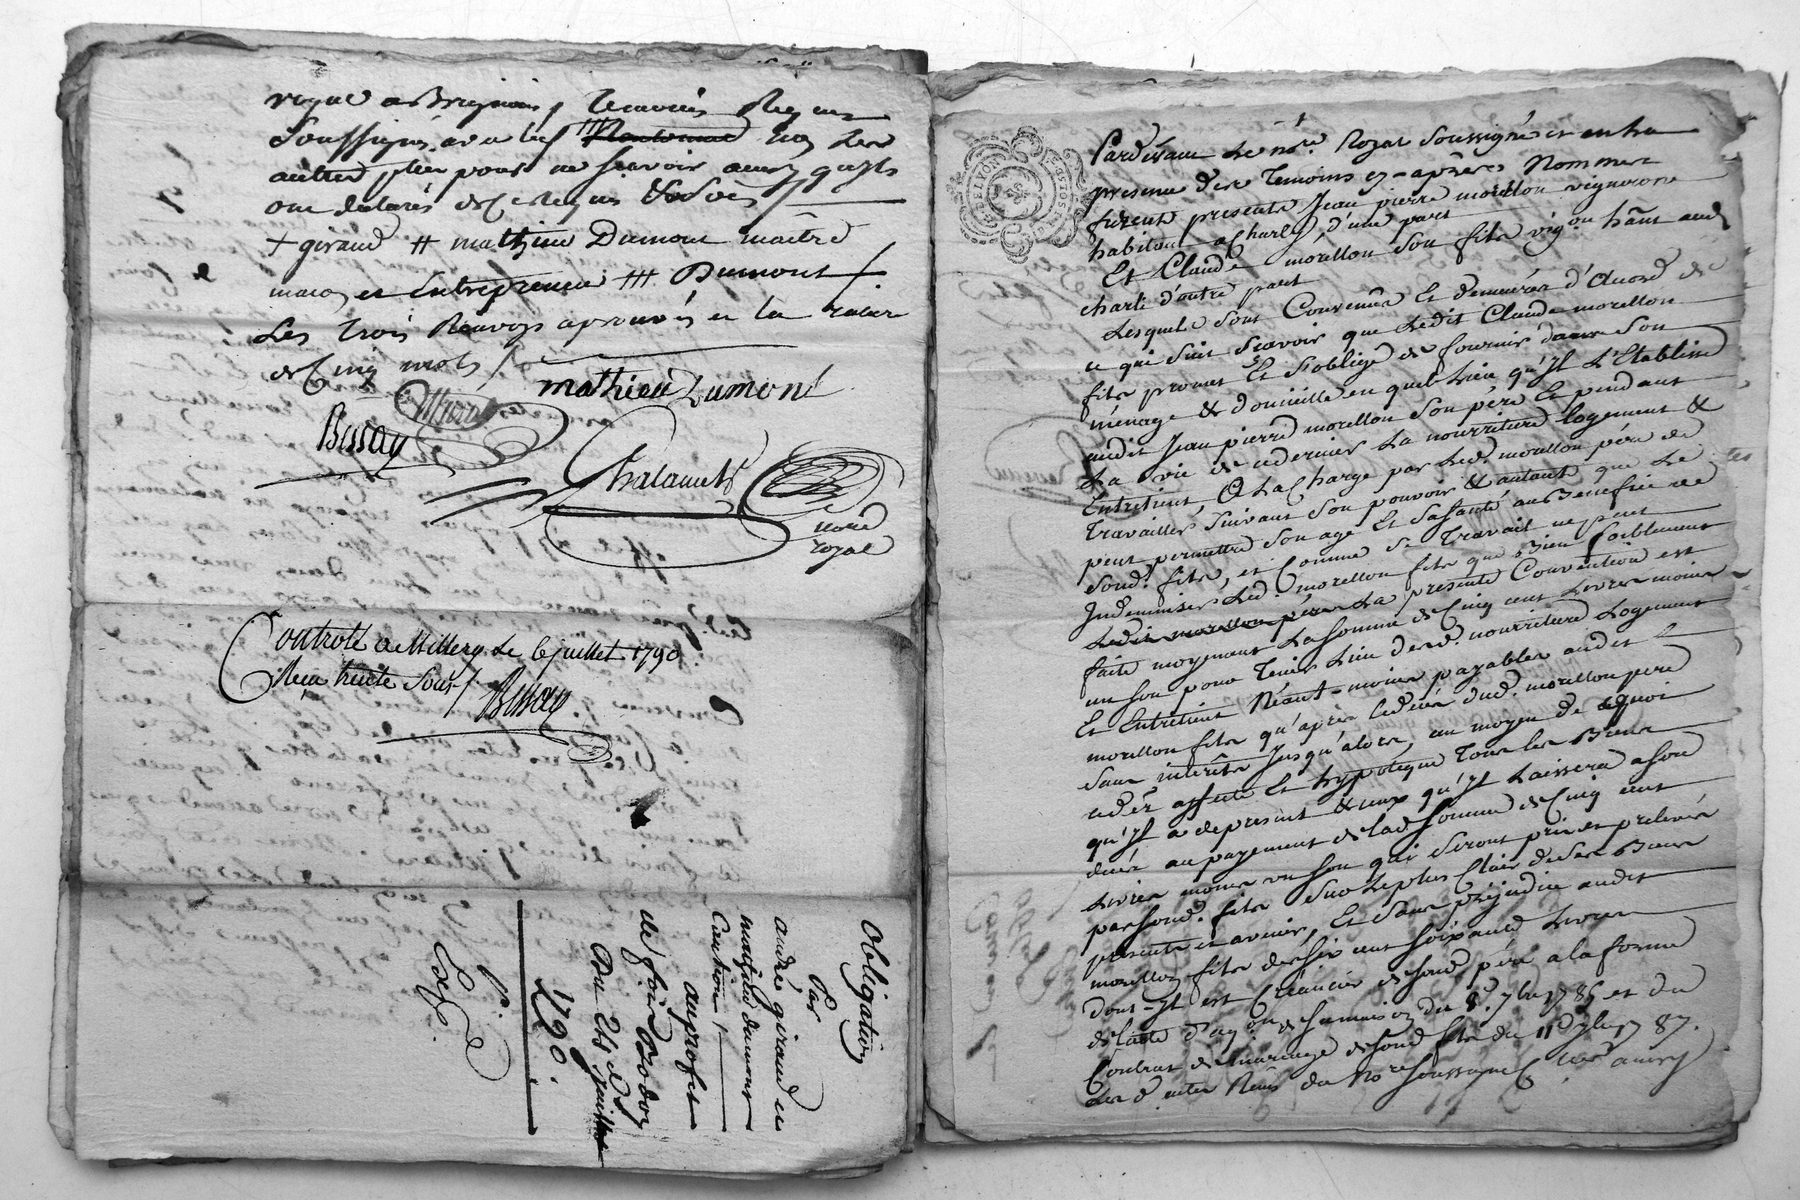 royal a Brignais, temoins Requis
soussignés avec led. /// non les
autres, plus pour ne sçavoir ainsy qu'ils
ont declarés de ce requis
+ giraud # mathieu Dumont maitre
macon et Entrepreneur /// Dumont /
Les Trois Renvoys aprouvés et la rature
de Cinq mots /
mathieu Dumont
Bissay
Chalamets
notre
royal
Controlé a Millery Le 6 juillet 1790.
Reçu trente sous /. Bissay
Obligation
Par
andré giraud et
mathieu dumont
Caution /
au profit
de
Du 4 juillet
1790.
Exp.
Pardevant Le notre. Royal Soussigné et en la
presence des Temoins cy-après Nommés
furent presents Jean pierre morellon vigneron
habitant a Charly, d'une part
Et Claude morellon Son fils vigon. hânt aud
charli d'autre part
Lesquels Sont Convenus Et demeurés d'Acord de
ce qui Suit Scavoir que Ledit Claude morellon
fils promet Et S'oblige de fournir dans Son
ménage & domicille en quel Lieu qu'yl L'Etablisse
audit Jean pierre morellon Son pere Et pendant
La vie de cedernier La nourriture Logement &
Entretient, a La Charge par Led. morellon pére de
Travailler Suivant Son pouvoir & autant que Le
peut permettre Son age Et Sa Santé au Benefice de
Soud. fils, et Comme Se Travail ne peut
Indemniser Led. morellon fils que Bien foiblement
Ledit morellon père La presente Convention est
faite moyenant La Somme de Cinq cent Livres moins
un Sou pour Tenir Lieu desd. nourriture Logement
Et Entretient Néant-moins payables audit
morellon fils qu'après Le décès dud. morellon pere
Sans interêts Jusqu'alors, au moyen de quoi
ceder affecte Et hypoteque Tous les Biens
qu'yl a de present & ceux qu'yl Laissera a Son
decès au payement de lad. Somme de Cinq cent
Livres moins un Sou qui Seront pris et prelevés
par Soud. fils Sur Le plus Clair de Ses Biens
presents et avenir, Et Sans préjudice audit
morellon fils de Six cent Soixante Livres
dont yl est Créancier de Soud. pére a la forme
de l'acte du 8. 7bre 1786 et du
Contrat de mariage de Soud. fils du 11e 1787.
Les d. actes Reçus du Nore Soussigné,